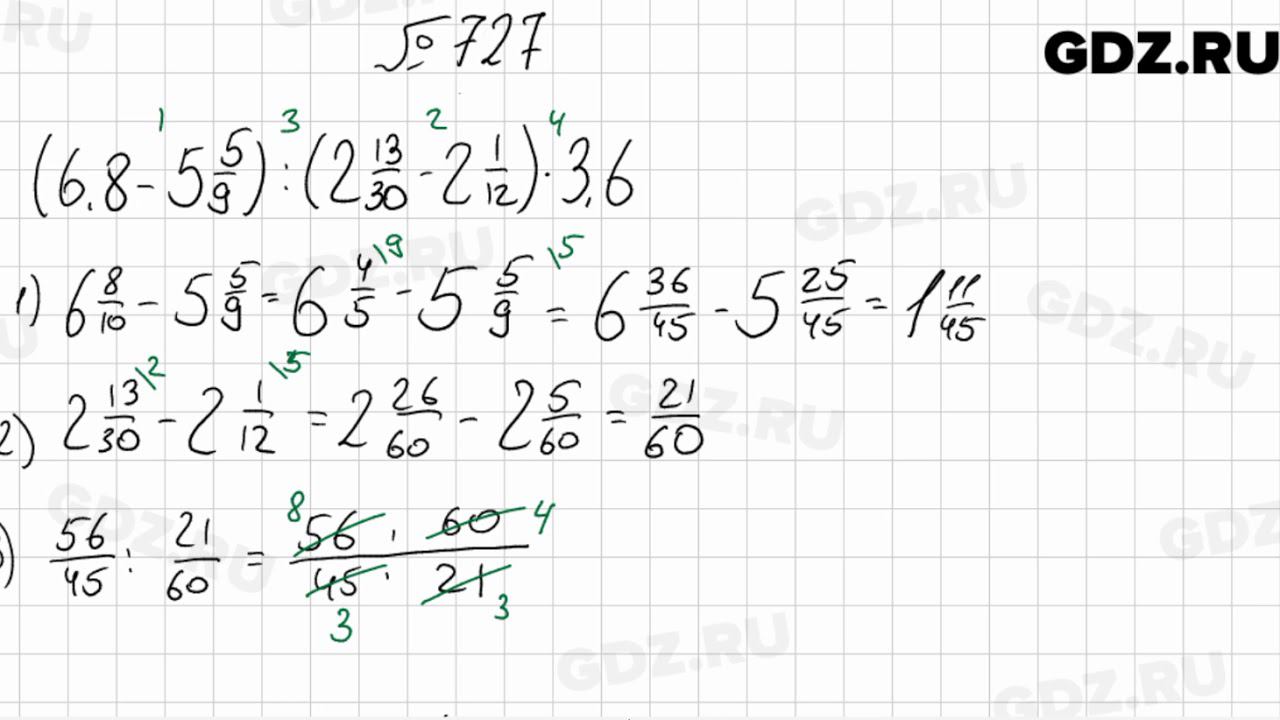 № 727
GDZ.RU
1 3 2 4
(6,8 - 5 5/9) : (2 13/30 - 2 1/12) · 3,6
1) 6 8/10 - 5 5/9 = 6 4/5 \9 - 5 5/9 \5 = 6 36/45 - 5 25/45 = 1 11/45
2) 2 13/30 \2 - 2 1/12 \5 = 2 26/60 - 2 5/60 = 21/60
) 56/45 : 21/60 = 56 · 60 / 45 · 21
8 4
3 3